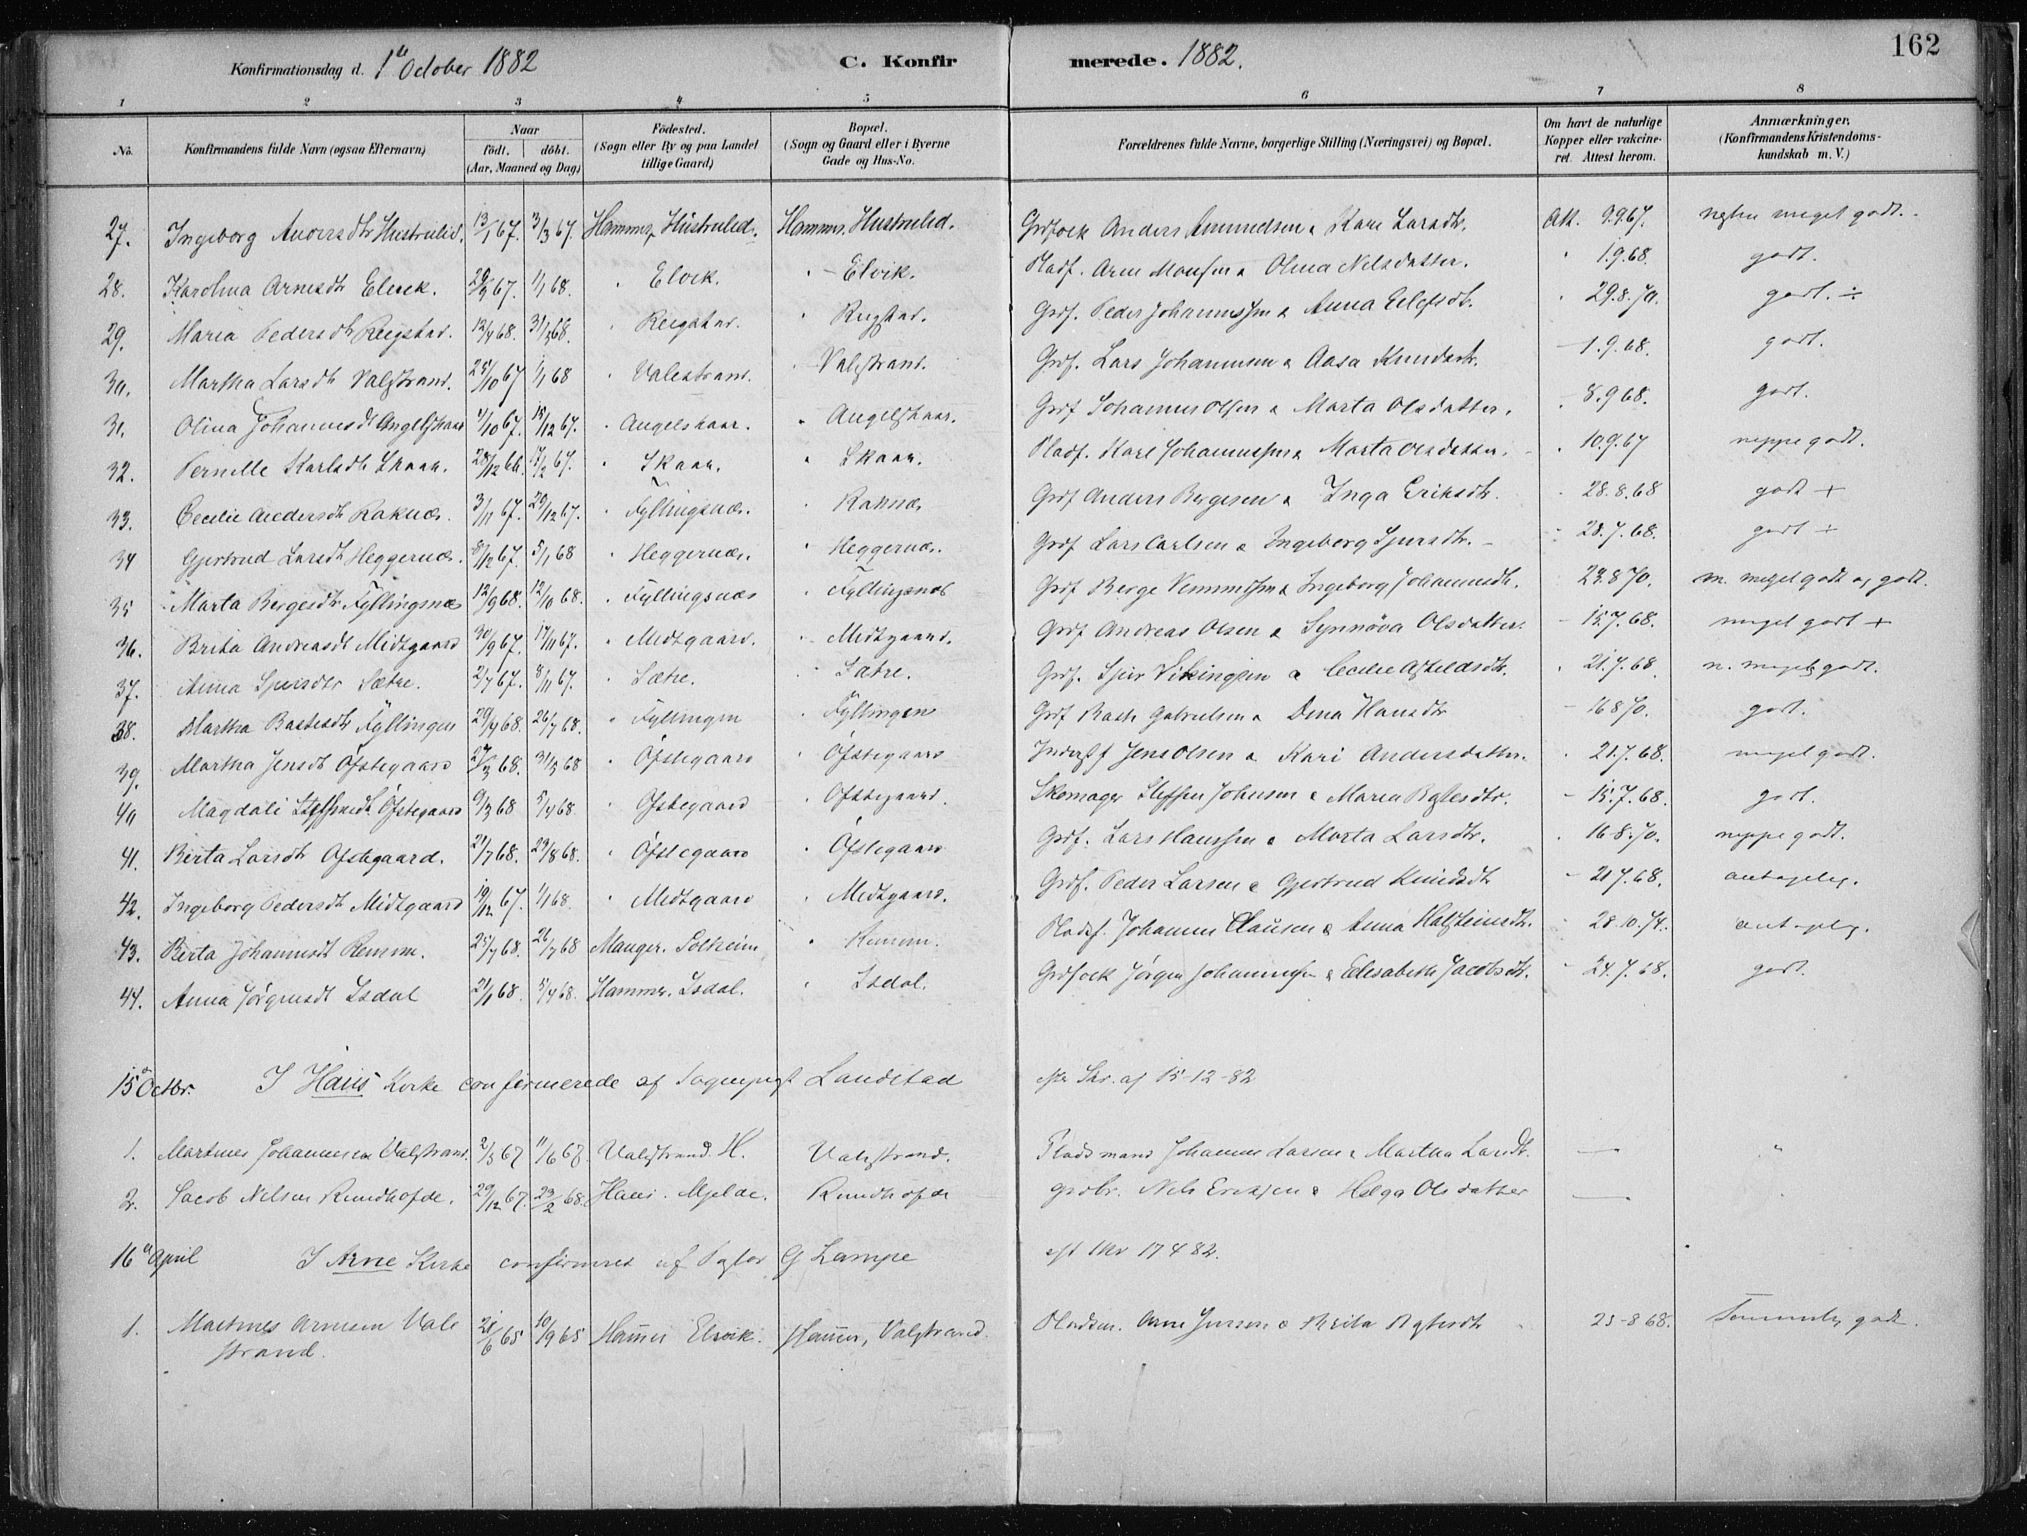 162
Konfirmationsdag d. 1ste October 1882 C. Konfirmerede. 1882.
1 2 3 4 5 6 7 8
No. Konfirmandens fulde Navn (ogsaa Efternavn) Naar födt. döbt. (Aar, Maaned og Dag) Födested. (Sogn eller By og paa Landet tillige Gaard) Bopæl. (Sogn og Gaard eller i Byerne Gade og Hus-No. Forældrenes fulde Navne, borgerlige Stilling (Næringsvei) og Bopæl. Om havt de naturlige Kopper eller vakcineret. Attest herom. Anmærkninger. (Konfirmandens Kristendomskundskab m. V.)
27. Ingeborg Andersdtr Hustrulid. 13/1 67. 3/3 67. Hammer, Hustrulid. Hammer. Hustrulid. Anders Amundsen & Kari Larsdtr. Att. 9.9.67. meget godt.
28. Karolina Arnesdtr Elvik. 67. 1/1 68. " Elvik. " Elvik. Pladf. Arne Monsen & Olina Nilsdatter. " 1.9.68. godt.
29. Maria Pedersdtr Reigstad. 12/4 68. 68. " Reigstad. " Reigstad. Grdf. Peder Johannessen & Anna . " 29.8.70. godt. ÷
30. Martha Larsdtr Valestrand. 25/10 67 1/1 68 " Valestrand. " Valestrand. Grdf. Lars Johannesen & Aasa Knudsdtr. - 1.9.68. godt.
31. Olina Johannesdtr Angelskaar 4/10 67. 15/12 67. " Angelskaar. " Angelskaar. Grdf Johannes Olsen & Marta Olsdatter. " 8.9 68. godt.
32. Pernille Karlsdtr Skaar. 28/12 66. 17/2 67. " Skaar. " Skaar. Pladf. Karl Johannessen & Marta Olsdatter. " 10.9.67 neppe godt.
33. Cecilie Andersdtr Raknæs. 3/11 67. 29/12 67. " Fyllingsnæs. " Raknæs Grdf Anders Bergesen & Inga Eriksdtr. " 28.8.68 godt +
34 Gjertrud Larsdtr Heggernæs. 8/12 67. 5/1 68 " Heggernæs. " Heggernæs. Grdf Lars Carlsen & Ingeborg Sjursdtr. - 28.7.68. godt +
35 Marta Bergesdtr Fyllingsnæs 12/9 68. 12/10 68. " Fyllingsnæs " Fyllingsnæs Grdf Berge & Ingeborg Johannesdtr. 23.8 70. n. meget godt og godt.
36. Brita Andreasdtr Midtgaard 30/9 67. 17/11 67. " Midtgaard. " Midtgaard. Grdf Andreas Olsen & Synnöva Olsdatter. - 15.7.68. meget godt +
37. Anna Sjursdtr Sætre. 2/7 67. 8/11 67. " Sætre. " Sætre. Grdf. Sjur Vikingsen & Cecilie . " 21.7.68 n. meget godt.
38. Martha Bastesdtr Fyllingen 20/4 68. 26/7 68. " Fyllingen " Fyllingen Grdf Baste Gabrielsen & Dina Hansdtr - 16 8 70. godt.
39. Martha Jensdtr Öfstegaard 27/3 68. 31/3 68 " Öfstegaard " Öfstegaard Jens Olsen & Kari Andersdatter. " 21.7.68. meget godt.
40 Magdali Steffensdtr Öfstegaard 9/3 68 5/4 68. " Ofstegaard " Öfstegaard. Skomager Steffen Johnsen & Maria . - 15.7.68. godt.
41. Berta Larsdtr Ofstegaard. 21/7 68. 23/8 68. " Öfstegaard " Öfstegaard Grdf. Lars Hanssen & Marta Larsdtr. " 16.8.70. neppe godt.
42. Ingeborg Pedersdtr Midtgaard 19/12 67. 1/1 68. " Midtgaard " Midtgaard. Grdf. Peder Larsen & Gjertrud Knudsdtr - 21.7.68. antagelig.
43. Berta Johannesdtr Remme. 25/7 68. 26/7 68 Manger. Solheim " Remme. Pladsf. Johannes Clausen & Anna . " 28.10.74. antagelig.
44. Anna Jørgensdtr Isdal 21/1 68. 5/4 68. Hammer. Isdal. " Isdal. Jørgen Johannessen & Elisabeth Jacobsdtr. - 24.7.68. godt.
15de Octbr. I Haus Kirke confirmerede af Sogneprest Landstad efter Skr. af 15-12-82
1. Martines Johannesen Valestrand. 2/5 67 11/6 67. Valestrand. H. Valestrand. Pladsmand Johannes Larsen & Martha Larsdtr. — "
2. Jacob Nilsen Rundhofde. 29/12 67. 23/2 68. Haus. Mjelde. Rundhofde Grdbr. Nils Eriksen & Helga Olsdatter — "
16de April I Arne Kirke confirmeret af Pastor G Lampe eft Skr 17 4 82.
1. Martines Arnesen Valestrand. 21/6 65 10/9 65 Hamer Elvik. Hamer, Valestrand. Pladsm. Arne Jensen & Brita 25-8 68. godt.